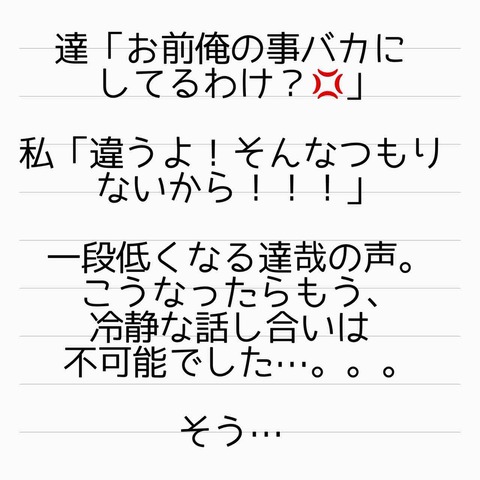 達「お前俺の事バカに
してるわけ？💢」
私「違うよ！そんなつもり
ないから！！！」
一段低くなる達哉の声。
こうなったらもう、
冷静な話し合いは
不可能でした…。。。
そう…